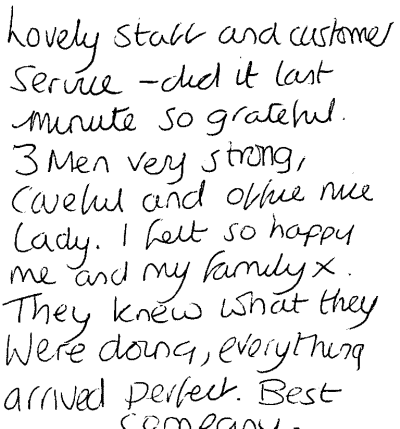 Lovely staff and customer
Service - did it last
minute so grateful.
3 Men very strong,
Careful and office nice
Lady. I felt so happy
me and my family x.
They knew what they
Were doing, everything
arrived perfect. Best
company.